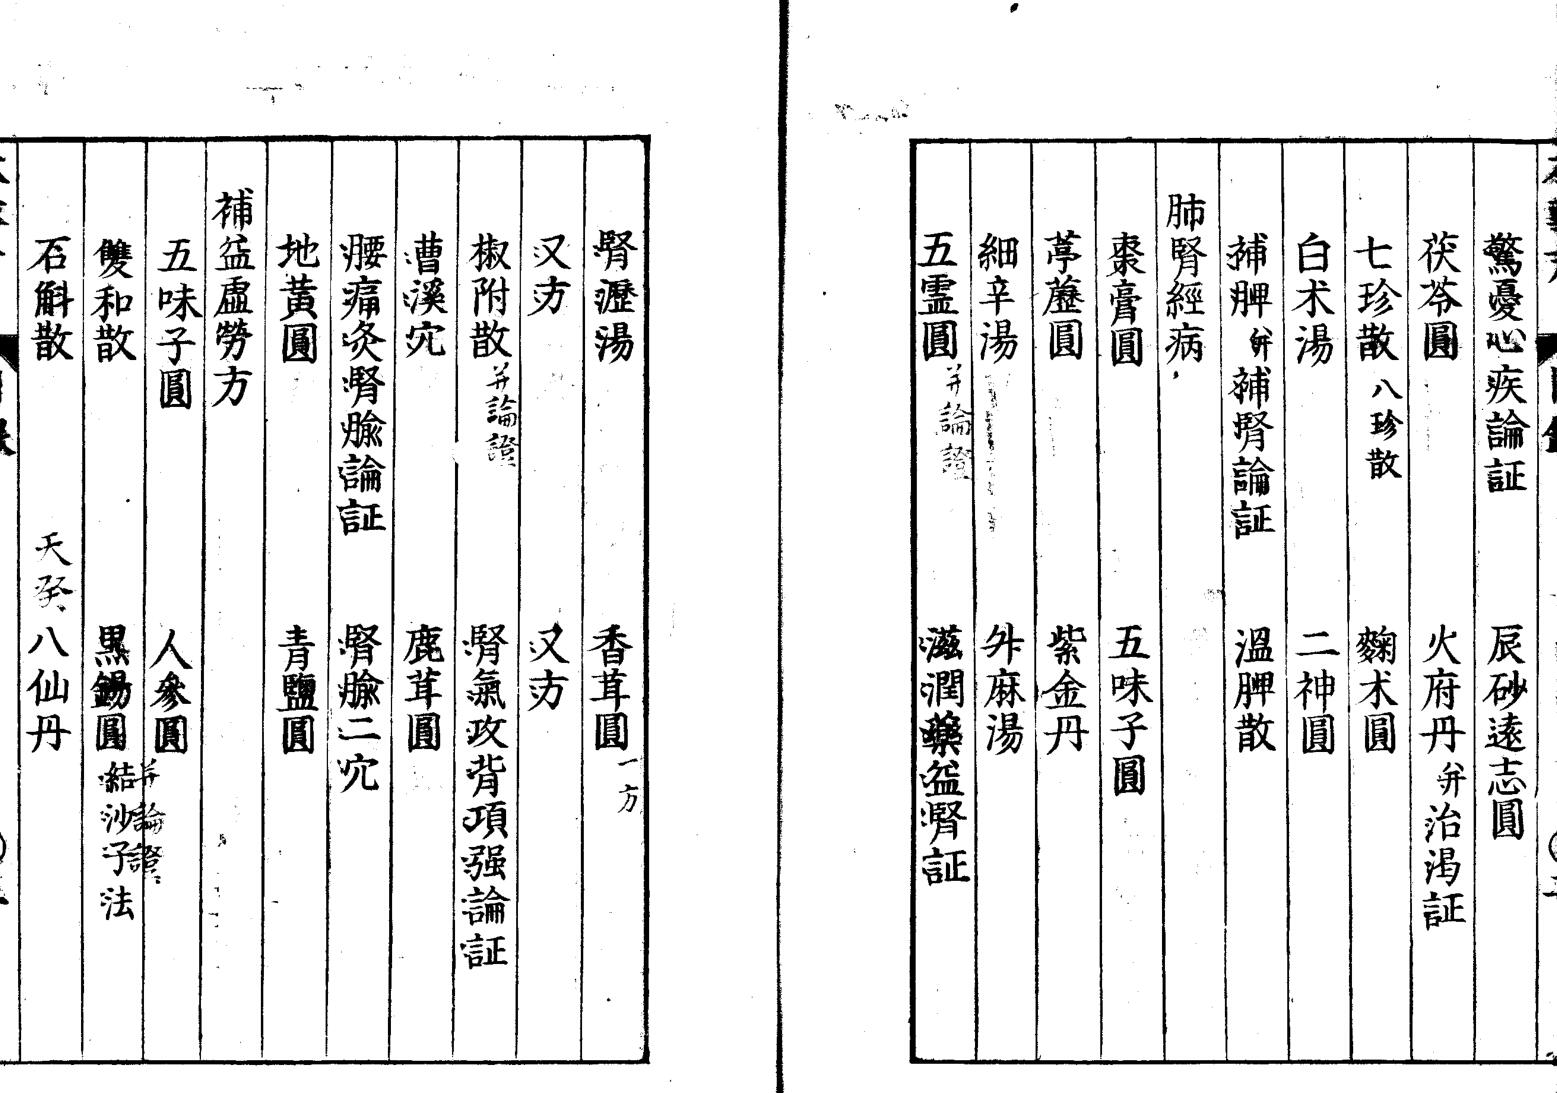 驚憂心疾論証 辰砂遠志圓
茯苓圓 火府丹 并治渴証
七珍散 八珍散 麴朮圓
白朮湯 二神圓
補脾并補腎論証 溫脾散
肺腎經病
棗膏圓 五味子圓
葶藶圓 紫金丹
細辛湯 升麻湯
五靈圓 并論證 滋潤藥益腎証
腎瀝湯 香茸圓 一方
又方 又方
椒附散 并論證 腎氣攻背項强論証
曹溪穴 鹿茸圓
腰痛灸腎腧論証 腎腧二穴
地黃圓 青鹽圓
補益虛勞方
五味子圓 人參圓 并論證
雙和散 黑錫圓 結沙子法
石斛散 天癸 八仙丹